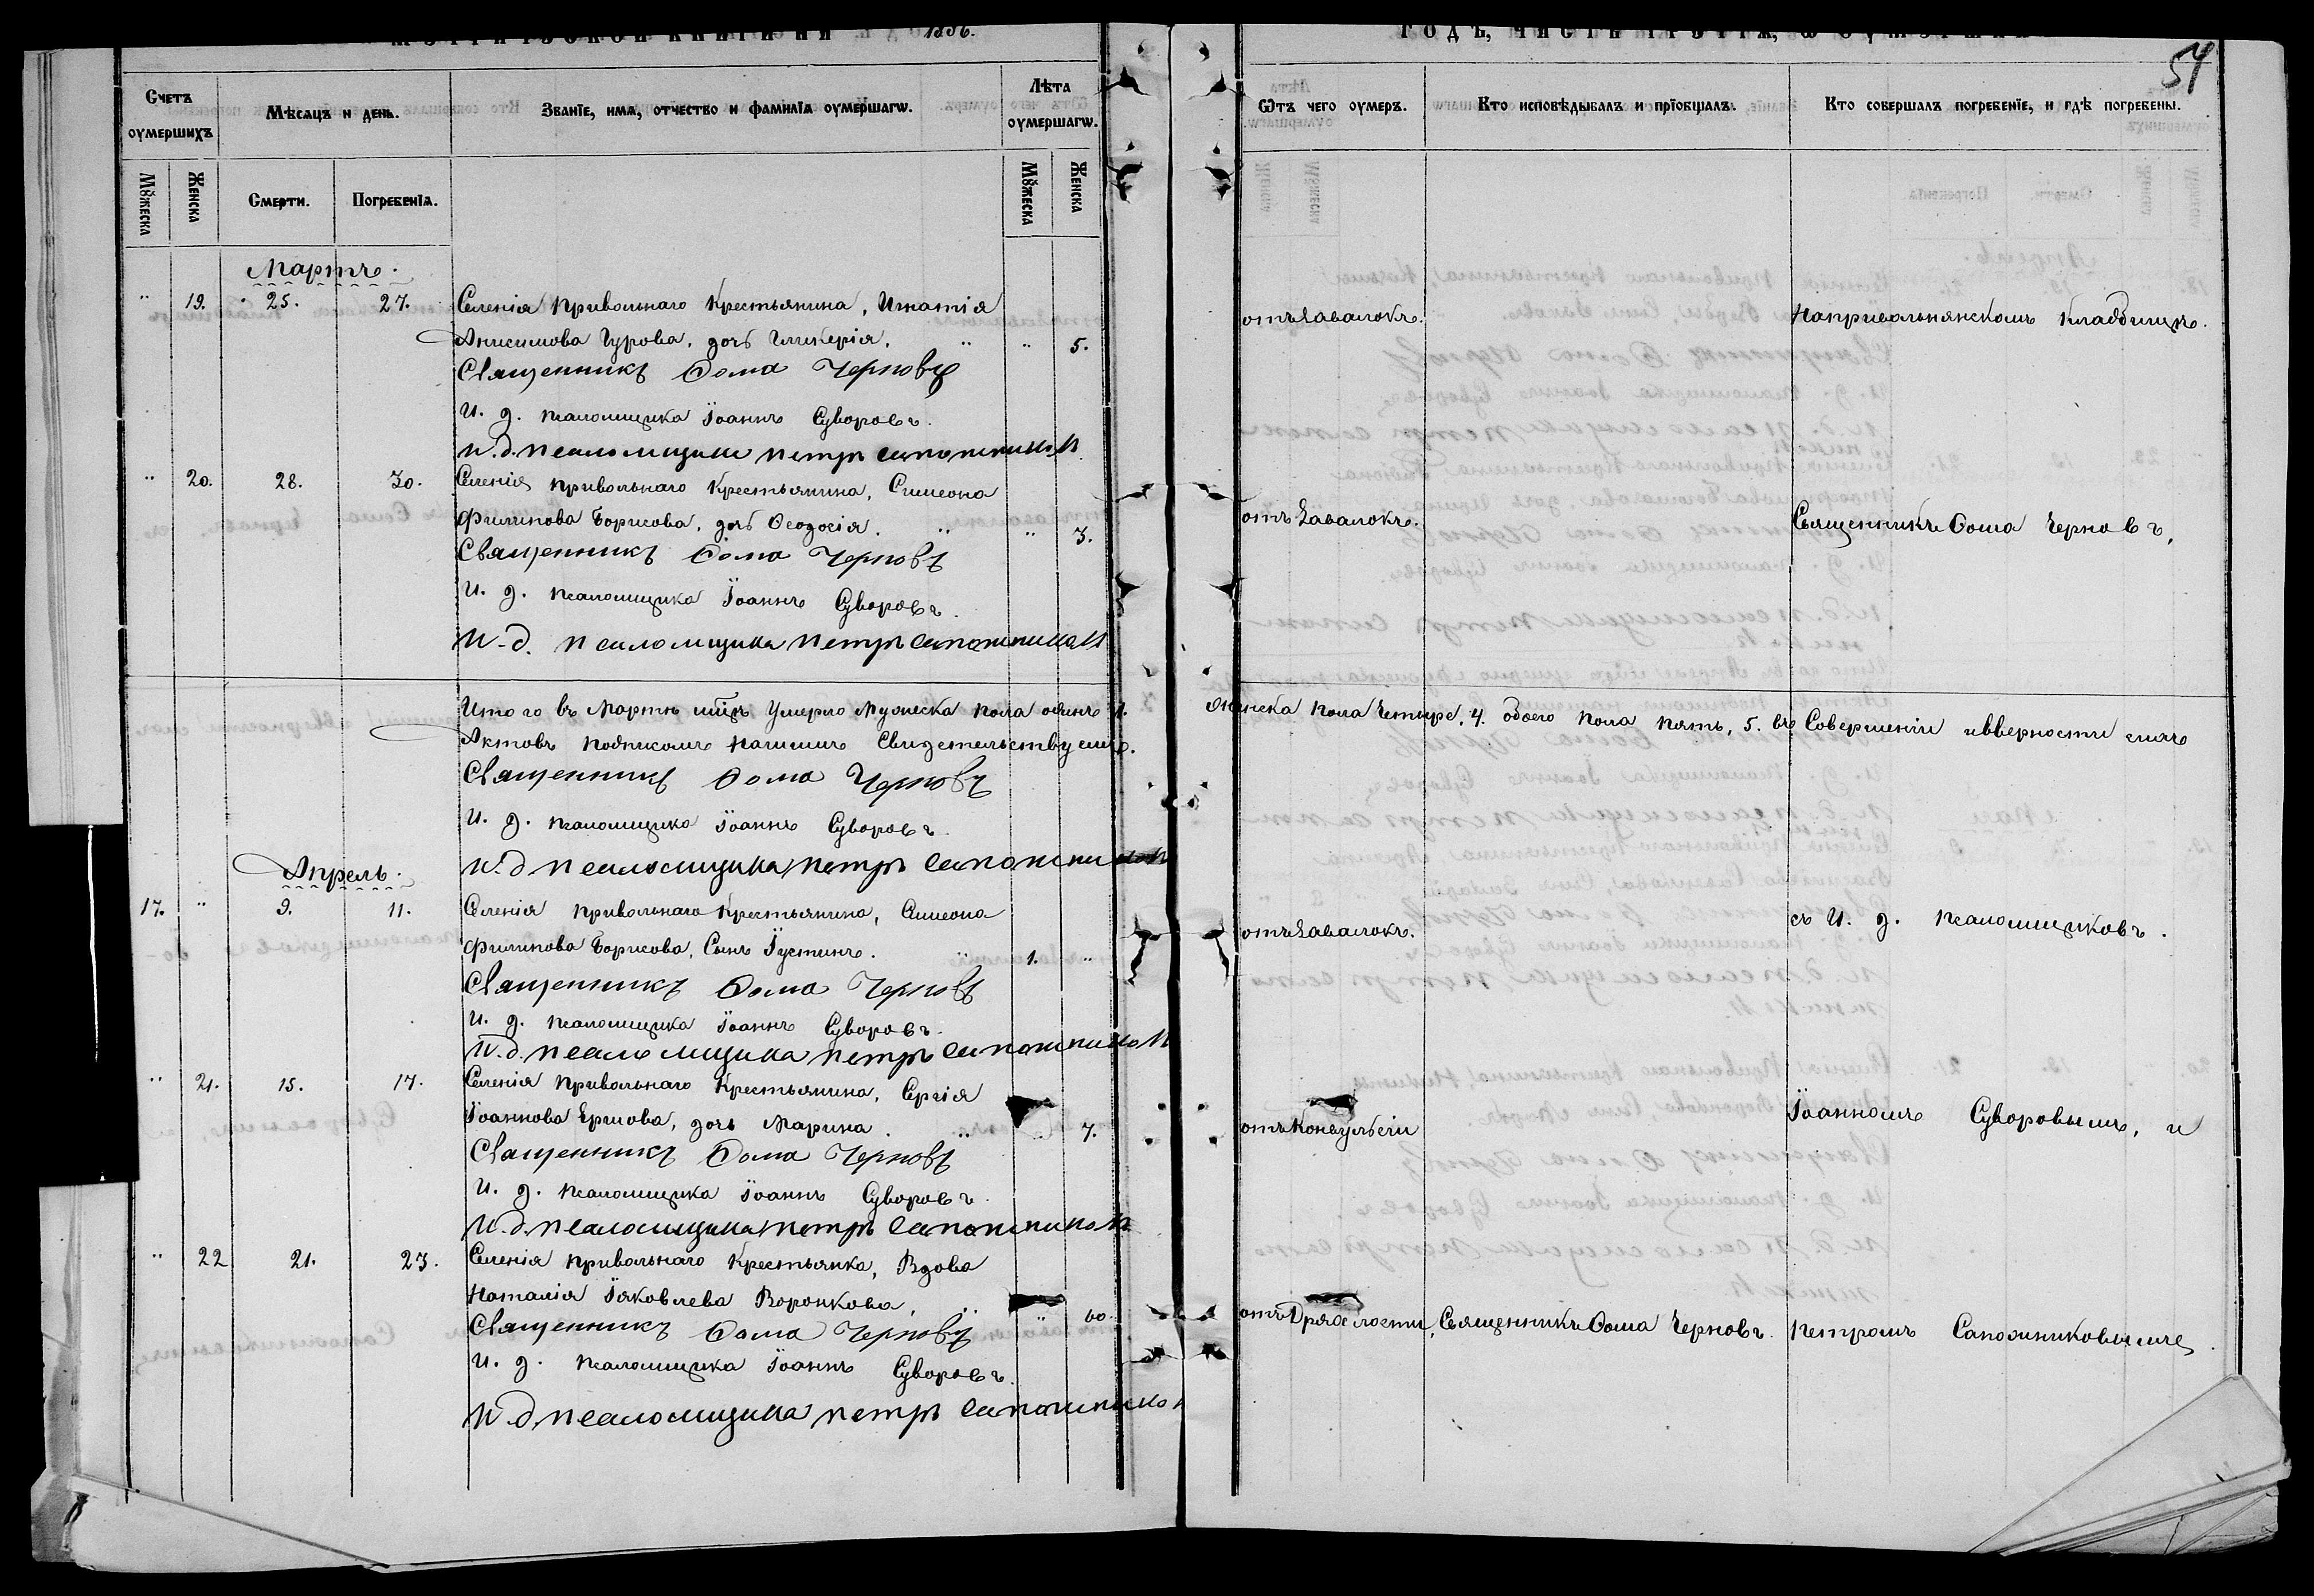 1886.
54
Счетъ оумершихъ
Мѣсяцъ и день.
Званіе, имя, отчество и фамилія оумершагѡ.
Лѣта оумершагѡ.
Мꙋжеска
Женска
Смерти.
Погребенія.
Мꙋжеска
Женска
Ѿтъ чего оумеръ.
Кто исповѣдывалъ и пріобщалъ.
Кто совершалъ погребеніе, и гдѣ погребены.
Мартъ.
" 19. 25. 27. Селенія Привольнаго Крестьянина, Игнатія
Анисимова Гурова, дочь Гликерія. " " 5.
отъ Завалокъ.
На привольнянскомъ кладбищѣ.
Священникъ Ѳома Черновъ
И. д. псаломщика Іоаннъ Суворовъ.
И. д. псаломщика петръ сапожников
" 20. 28. 30. Селенія Привольнаго Крестьянина, Симеона
Филипова Борисова, дочь Ѳеодосія. " " 3.
отъ Завалокъ.
Священникъ Ѳома Черновъ,
Священникъ Ѳома Черновъ
И. д. псаломщика Іоаннъ Суворовъ.
И. д. псаломщика петръ сапожников
Итого въ Мартѣ мѣцѣ Умерло Мужеска пола одинъ 1. Женска пола четыре, 4. обоего пола пять, 5. въ Совершеніи и вверности сихъ
Актовъ подписомъ нашимъ Свидетельствуемъ.
Священникъ Ѳома Черновъ
И. д. псаломщика Іоаннъ Суворовъ.
И. д. псаломщика петръ сапожников
Апрель.
17. " 9. 11. Селенія Привольнаго Крестьянина, Симеона
Филипова Борисова, Сынъ Іустинъ. " 1. "
отъ Завалокъ.
съ И. д. псаломщиковъ.
Священникъ Ѳома Черновъ
И. д. псаломщика Іоаннъ Суворовъ.
И. д. псаломщика петръ сапожников
" 21. 15. 17. Селенія Привольнаго Крестьянина, Сергія
Іоаннова Ершова, дочь Марина. " " 7.
отъ Конвульсіи
Іоанномъ Суворовымъ, и
Священникъ Ѳома Черновъ
И. д. псаломщика Іоаннъ Суворовъ.
И. д. псаломщика петръ сапожников
" 22 21. 23. Селенія Привольнаго Крестьянка, Вдова
Наталія Іаковлева Воронкова. " " 60.
отъ Дряхлости, Священникъ Ѳома Черновъ. Петромъ Сапожниковымъ.
Священникъ Ѳома Черновъ
И. д. псаломщика Іоаннъ Суворовъ.
И. д. псаломщика петръ сапожников